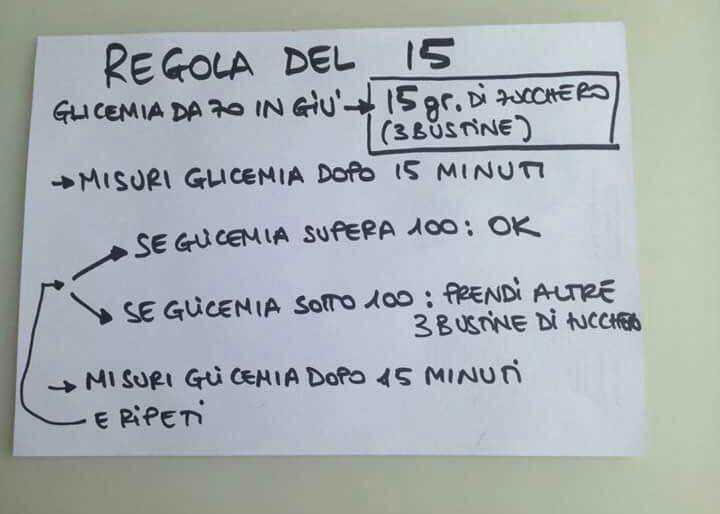 REGOLA DEL 15
GLICEMIA DA 70 IN GIU' → 15 gr. DI ZUCCHERO
(3 BUSTINE)
→ MISURI GLICEMIA DOPO 15 MINUTI
SE GLICEMIA SUPERA 100: OK
SE GLICEMIA SOTTO 100: PRENDI ALTRE
3 BUSTINE DI ZUCCHERO
→ MISURI GLICEMIA DOPO 15 MINUTI
E RIPETI